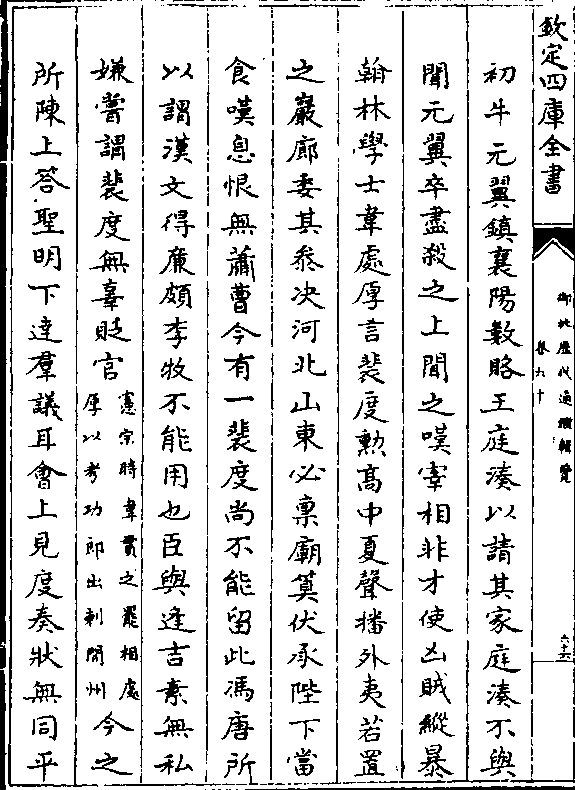 欽定四庫全書
御批歴代通鑑輯覽
卷九十
初牛元翼鎮襄陽數賂王庭湊以請其家庭湊不與
聞元翼卒盡殺之上聞之嘆宰相非才使凶賊縱暴
翰林學士韋處厚言裴度勲髙中夏聲播外夷若置
之巖廊委其叅决河北山東必稟廟算伏承陛下當
食嘆息恨無蕭曹今有一裴度尚不能留此馮唐所
以謂漢文得廉頗李牧不能用也臣與逢吉素無私
嫌嘗謂裴度無辜貶官
憲宗時韋貫之罷相處
厚以考功郎出刺開州
今之
所陳上答聖明下達羣議耳會上見度奏狀無同平